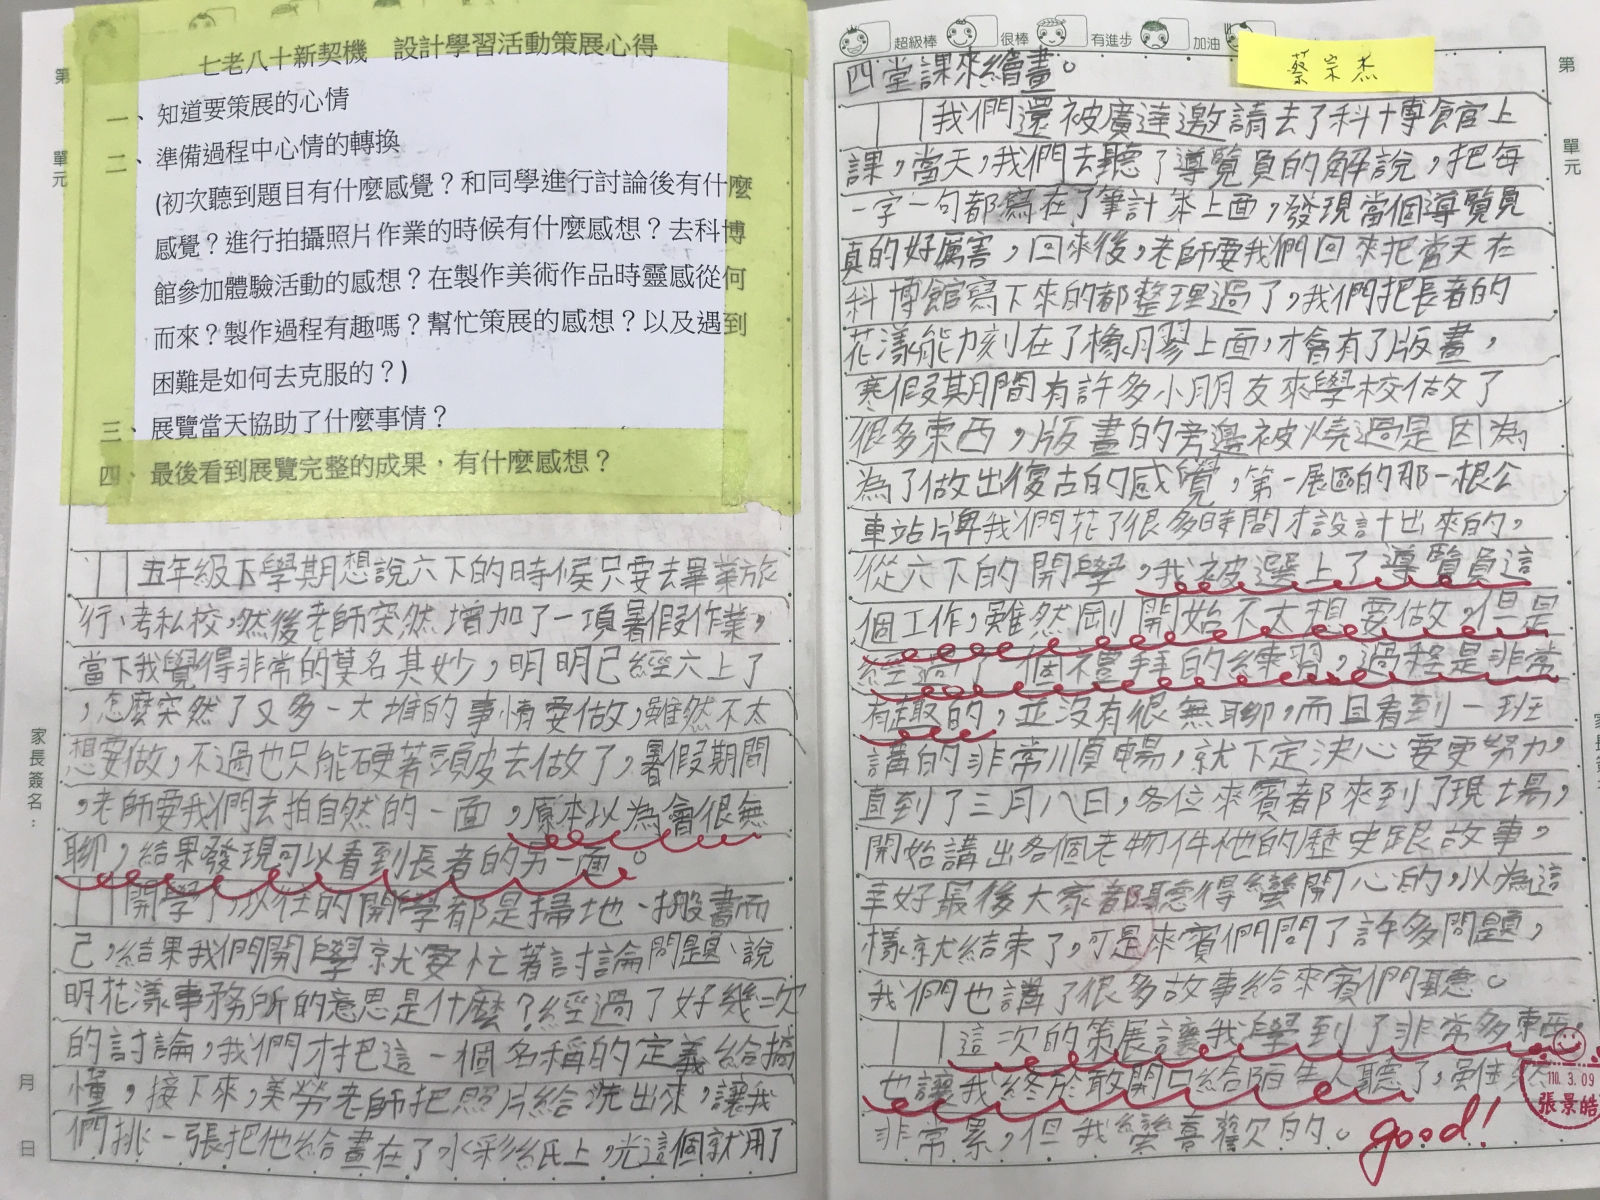 七老八十新契機　設計學習活動策展心得
一、知道要策展的心情
二、準備過程中心情的轉換
(初次聽到題目有什麼感覺？和同學進行討論後有什麼
感覺？進行拍攝照片作業的時候有什麼感想？去科博
館參加體驗活動的感想？在製作美術作品時靈感從何
而來？製作過程有趣嗎？幫忙策展的感想？以及遇到
困難是如何去克服的？)
三、展覽當天協助了什麼事情？
四、最後看到展覽完整的成果，有什麼感想？
第
單元
家長簽名：
月
日
五年級下學期想說六下的時候只要去畢業旅
行、考私校，然後老師突然增加了一項暑假作業，
當下我覺得非常的莫名其妙，明明已經六上了
，怎麼突然了又多一大堆的事情要做，雖然不太
想要做，不過也只能硬著頭皮去做了，暑假期間
，老師要我們去拍自然的一面，原本以為會很無
聊，結果發現可以看到長者的另一面。
開學了，以往的開學都是掃地、搬書而
己，結果我們開學就要忙著討論問題、說
明花漾事務所的意思是什麼？經過了好幾次
的討論，我們才把這一個名稱的定義給搞
懂，接下來，美勞老師把照片給洗出來，讓我
們挑一張把他給畫在了水彩紙上，光這個就用了
超級棒
很棒
有進步
加油
蔡宗杰
第
單元
四堂課來繪畫。
我們還被廣達邀請去了科博館官上
課，當天，我們去聽了導覽員的解說，把每
一字一句都寫在了筆計本上面，發現當個導覽員
真的好厲害，回來後，老師要我們回來把當天在
科博館寫下來的都整理過了，我們把長者的
花漾能力刻在了橡膠上面，才會有了版畫，
寒假期間有許多小朋友來學校做了
很多東西，版畫的旁邊被燒過是因為
為了做出復古的感覺，第一展區的那一根公
車站牌我們花了很多時間才設計出來的，
從六下的開學，我被選上了導覽員這
個工作，雖然剛開始不太想要做，但是
經過了一個禮拜的練習，過程是非常
有趣的，並沒有很無聊，而且看到一班
講的非常順暢，就下定決心要更努力，
直到了三月八日，各位來賓都來到了現場，
開始講出各個老物件他的歷史跟故事，
幸好最後大家都聽得蠻開心的，以為這
樣就結束了，可是來賓們問了許多問題，
我們也講了很多故事給來賓們聽。
這次的策展讓我學到了非常多東西，
也讓我終於敢開口給陌生人聽了，雖然
非常累，但我蠻喜歡的。
good!
110. 3. 09
張景皓